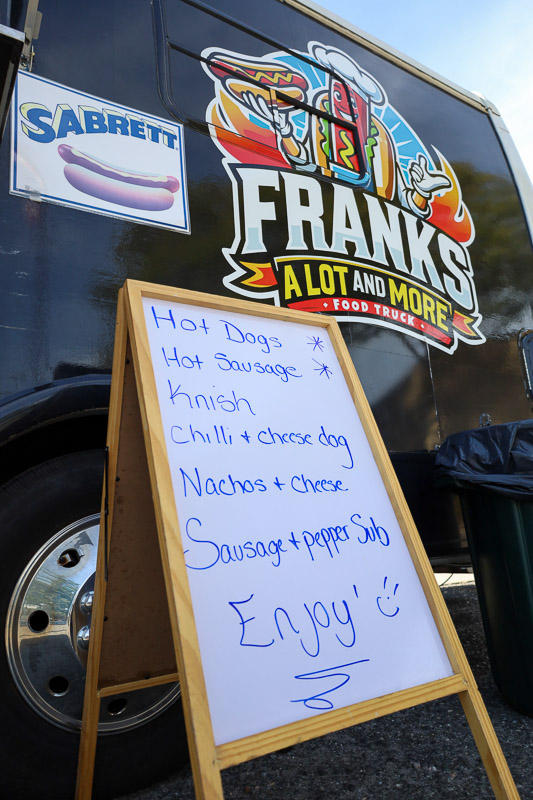 SABRETT
FRANKS
A LOT AND MORE
FOOD TRUCK
Hot Dogs *
Hot Sausage *
Knish
Chilli + cheese dog
Nachos + cheese
Sausage + pepper Sub
Enjoy!